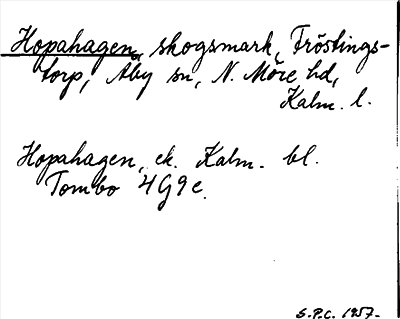 Hopahagen, skogsmark, Tröstings-
torp, Åby sn, N. Möre hd,
Kalm. l.
Hopahagen, ek. Kalm. bl.
Tombo 4G9e.
S.P.C. 1957.